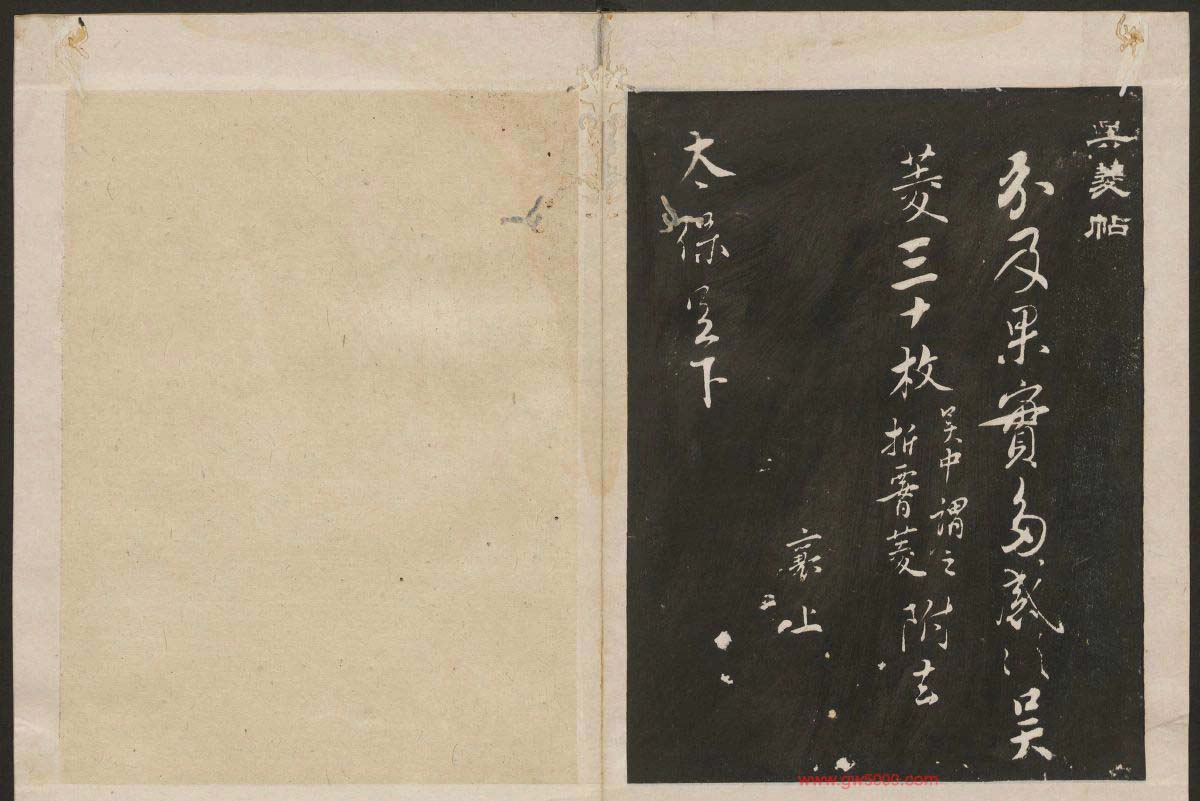 吳菱帖
分及果實多感次吳
菱三十枚
吳中謂之
折署菱
附去
襄上
太保足下
www.gw5000.com